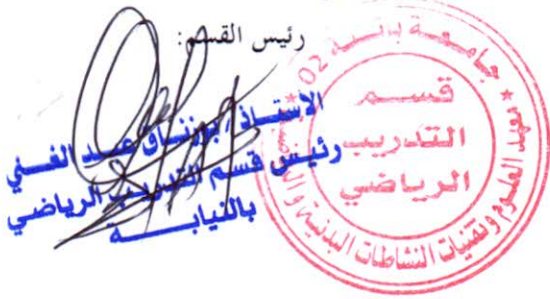 رئيس القسم:
الاستاذ / بوزناق عبد الغني
رئيس قسم التدريب الرياضي
بالنيابة
جامعة باتنة 02
قسم
التدريب
الرياضي
معهد العلوم وتقنيات النشاطات البدنية و